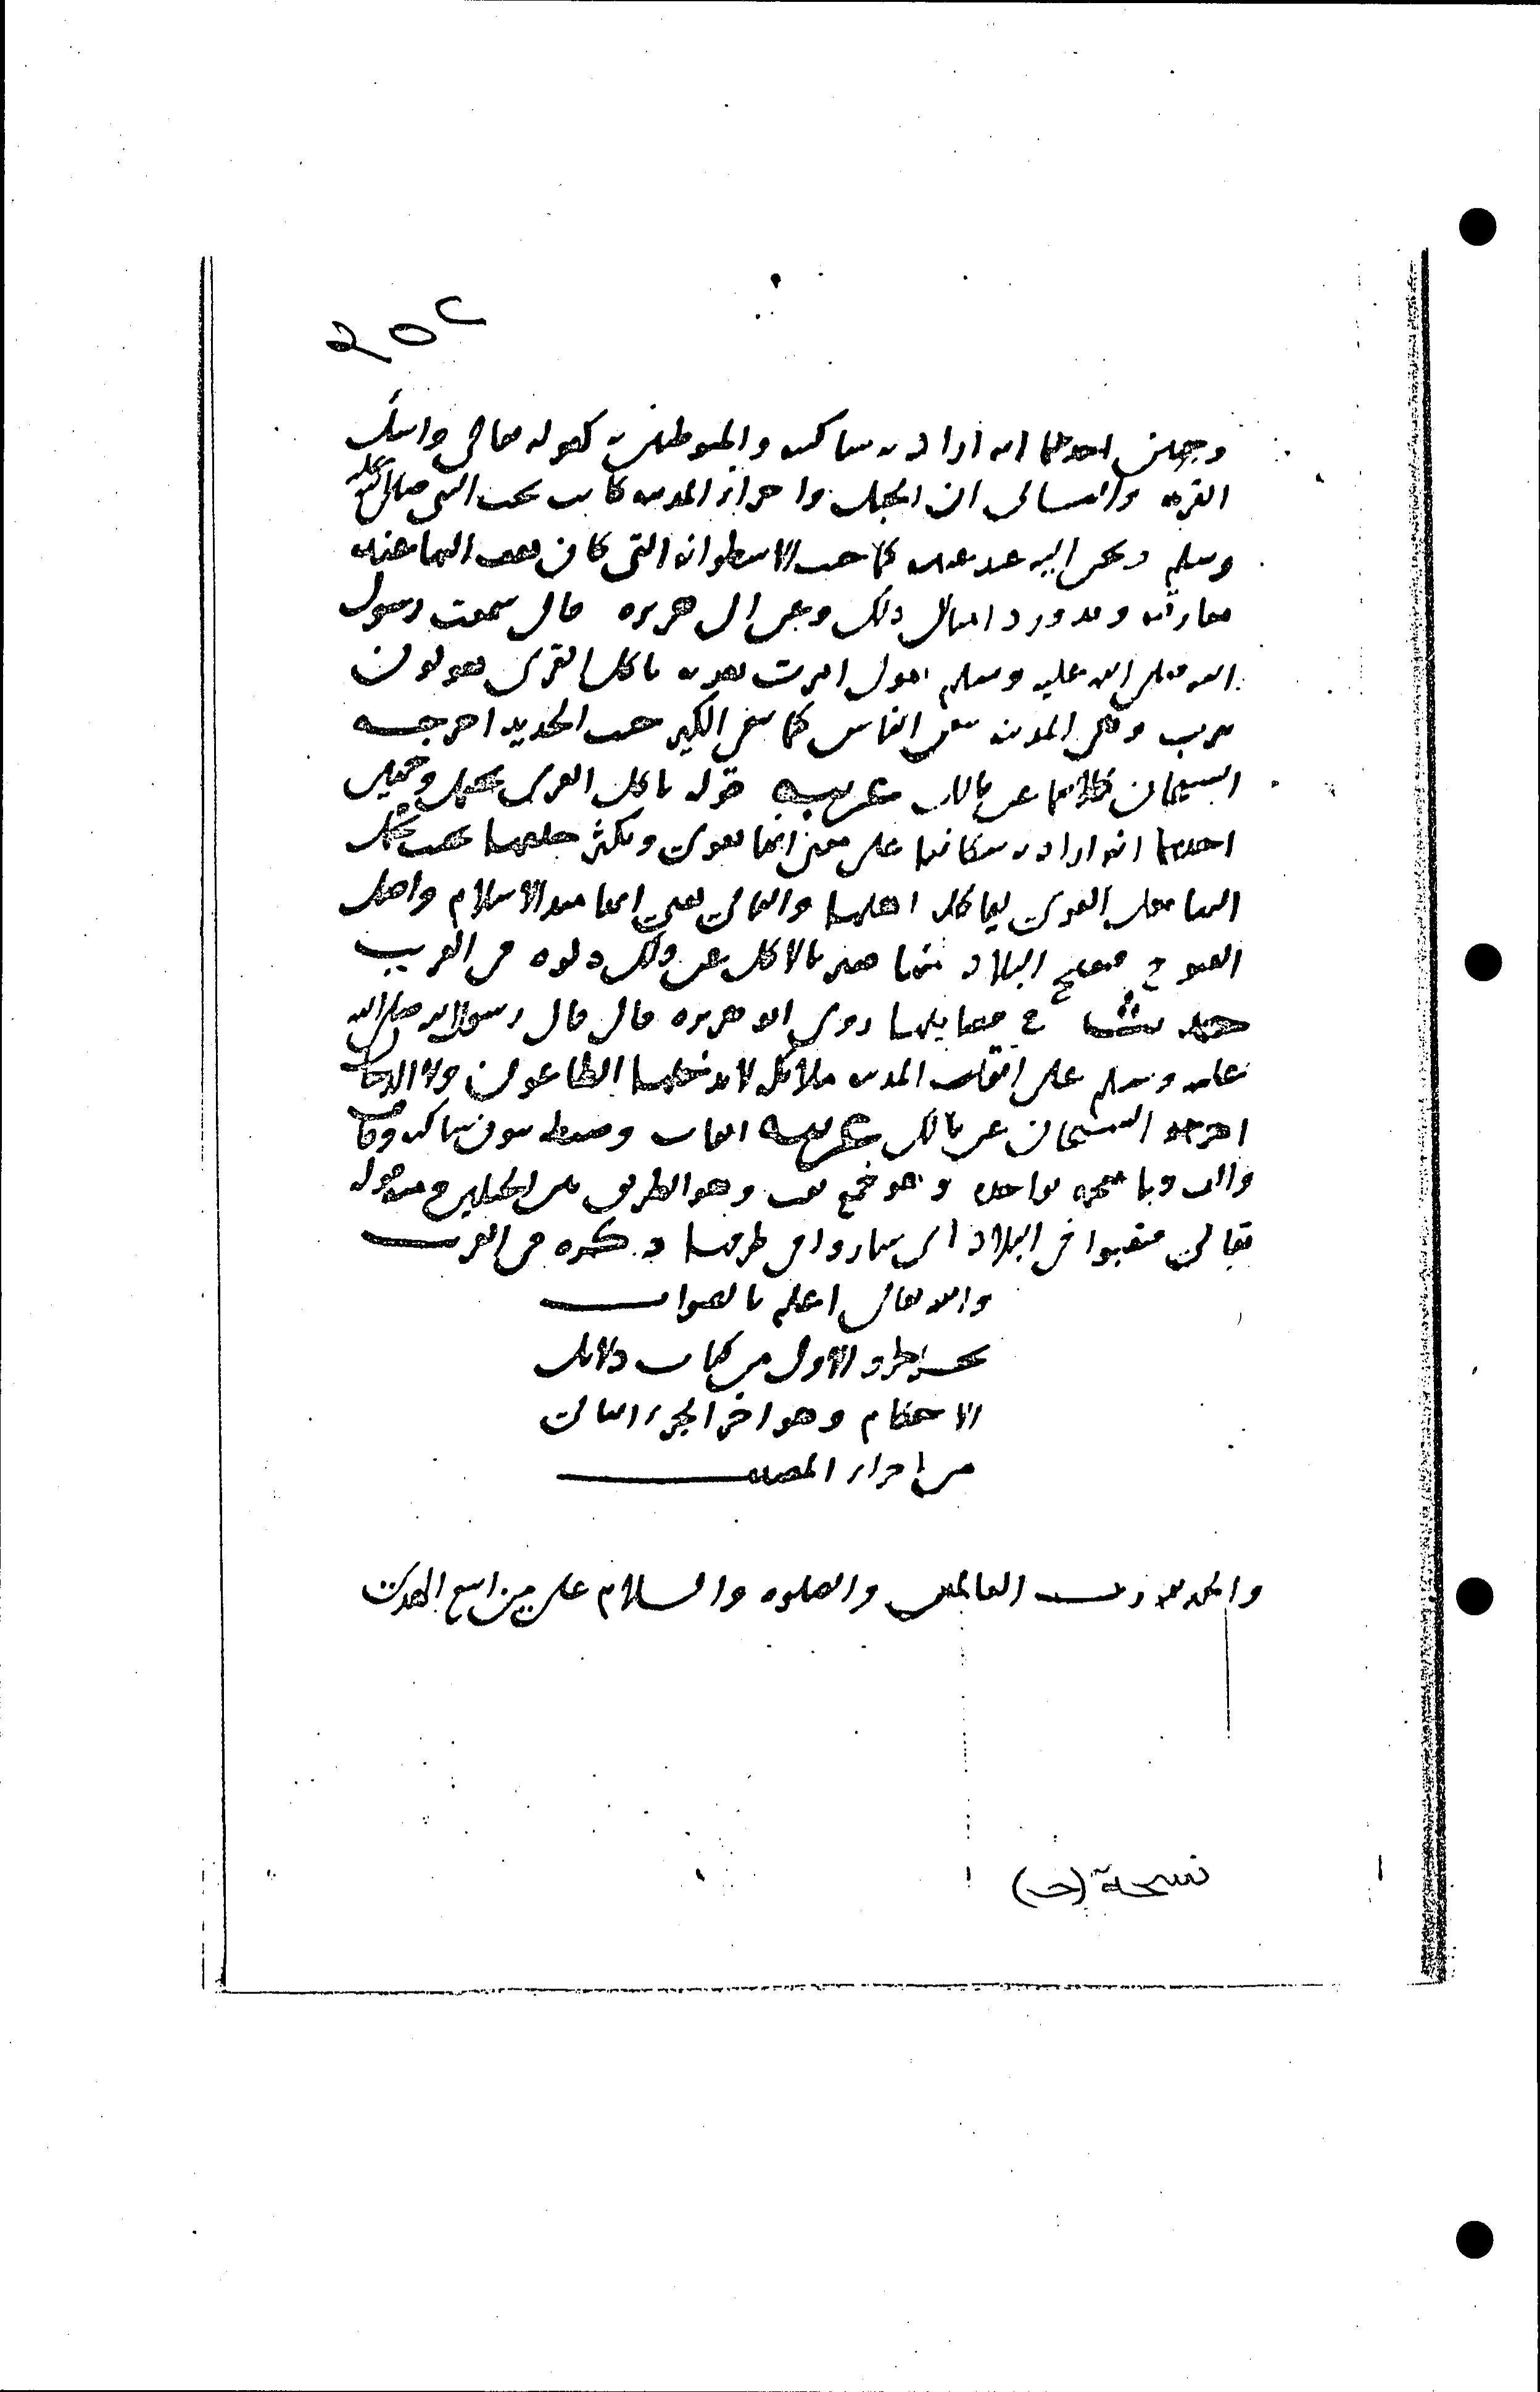 ٢٥٢
وجهين احدهما انه اراد به ساكنيه والمتوطنين به كقوله تعالى واسئل
القرية والثاني ان الجبل واحزاز المدينة كانت تحب النبي صلى الله عليه
وسلم وتحن اليه عند غيبته كما حنت الاسطوانة التي كان يصعد اليها عند
مفارقته وقد ورد امثال ذلك وعن ابي هريرة قال سمعت رسول
الله صلى الله عليه وسلم يقول امرت بقرية تاكل القرى يقولون
يثرب وهي المدينة تنفي الناس كما ينفي الكير خبث الحديد اخرجه
الشيخان كلاهما عن مالك غريبه قوله تاكل القرى يحتمل وجهين
احدهما انه اراد به سكانها على معنى انها تقوى ويكثر خلقها
القرى اهلها والثاني يعني انها منها الاسلام واهل
الفتوح فتفتح البلاد منها فعبر بالاكل عن ذلك ذكره في الغريب
حديث في فضايلها روى ابو هريرة قال قال رسول الله صلى الله
عليه وسلم على انقاب المدينة ملائكة لا يدخلها الطاعون ولا الدجال
اخرجه الشيخان عن مالك غريبه انقاب وضبطه بنون ساكنة وقاف
والف وبا معجمة بواحدة وهو جمع نقب وهو الطريق بين الجبلين ومنه قوله
تعالى فنقبوا في البلاد اي ساروا في طرقها ذكره في الغريب
والله تعالى اعلم بالصواب
الاول من كتاب دلائل
الاحكام وهو اخر الجزء الثالث
من اجزاء المصنف
والحمد لله رب العالمين والصلوة والسلام على من اتبع الهدى
نسخة (ح)